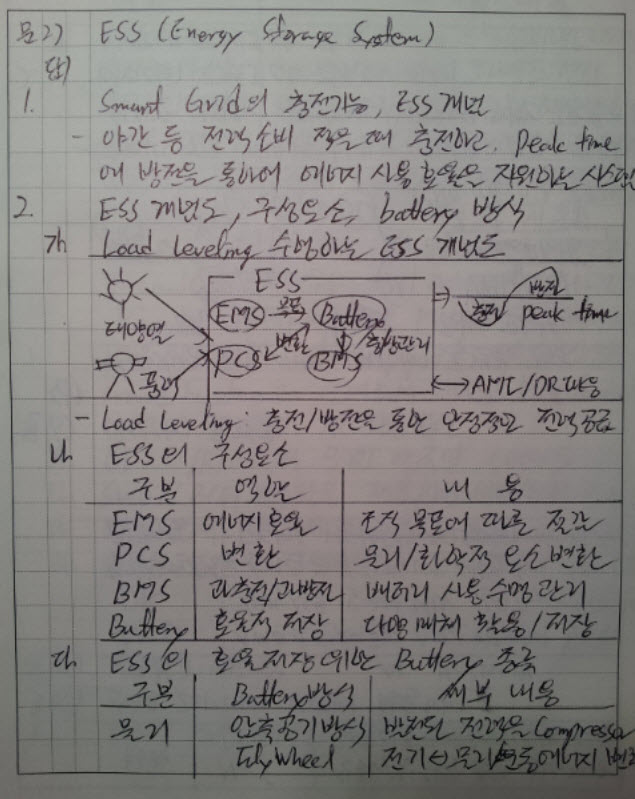 문2) ESS (Energy Storage System)
답)
1. Smart Grid의 충전기능, ESS 개념
- 야간 등 전력소비 적을때 충전하고, peak time
에 방전을 통하여 에너지 사용 효율을 지원하는 시스템
2. ESS 개념도, 구성요소, battery 방식
가. Load Leveling 수행하는 ESS 개념도
ESS
태양열
풍력
EMS
Battery
변환
PCS
BMS
방전
충전
peak time
AMI/DR
- Load Leveling: 충전/방전을 통한 안정적인 전력공급
나. ESS의 구성요소
구분 역할 내용
EMS 에너지효율 조직 목표에 따른 절감
PCS 변환 물리/화학적 요소변환
BMS 과충전/과방전 배터리 사용 수명 관리
Buttery 효율적 저장 다양매체 활용/저장
다. ESS의 효율저장 위한 Buttery 종류
구분 Battery방식 세부 내용
물리 압축공기방식 반환된 전력을 Compressor
FlyWheel 전기↔물리